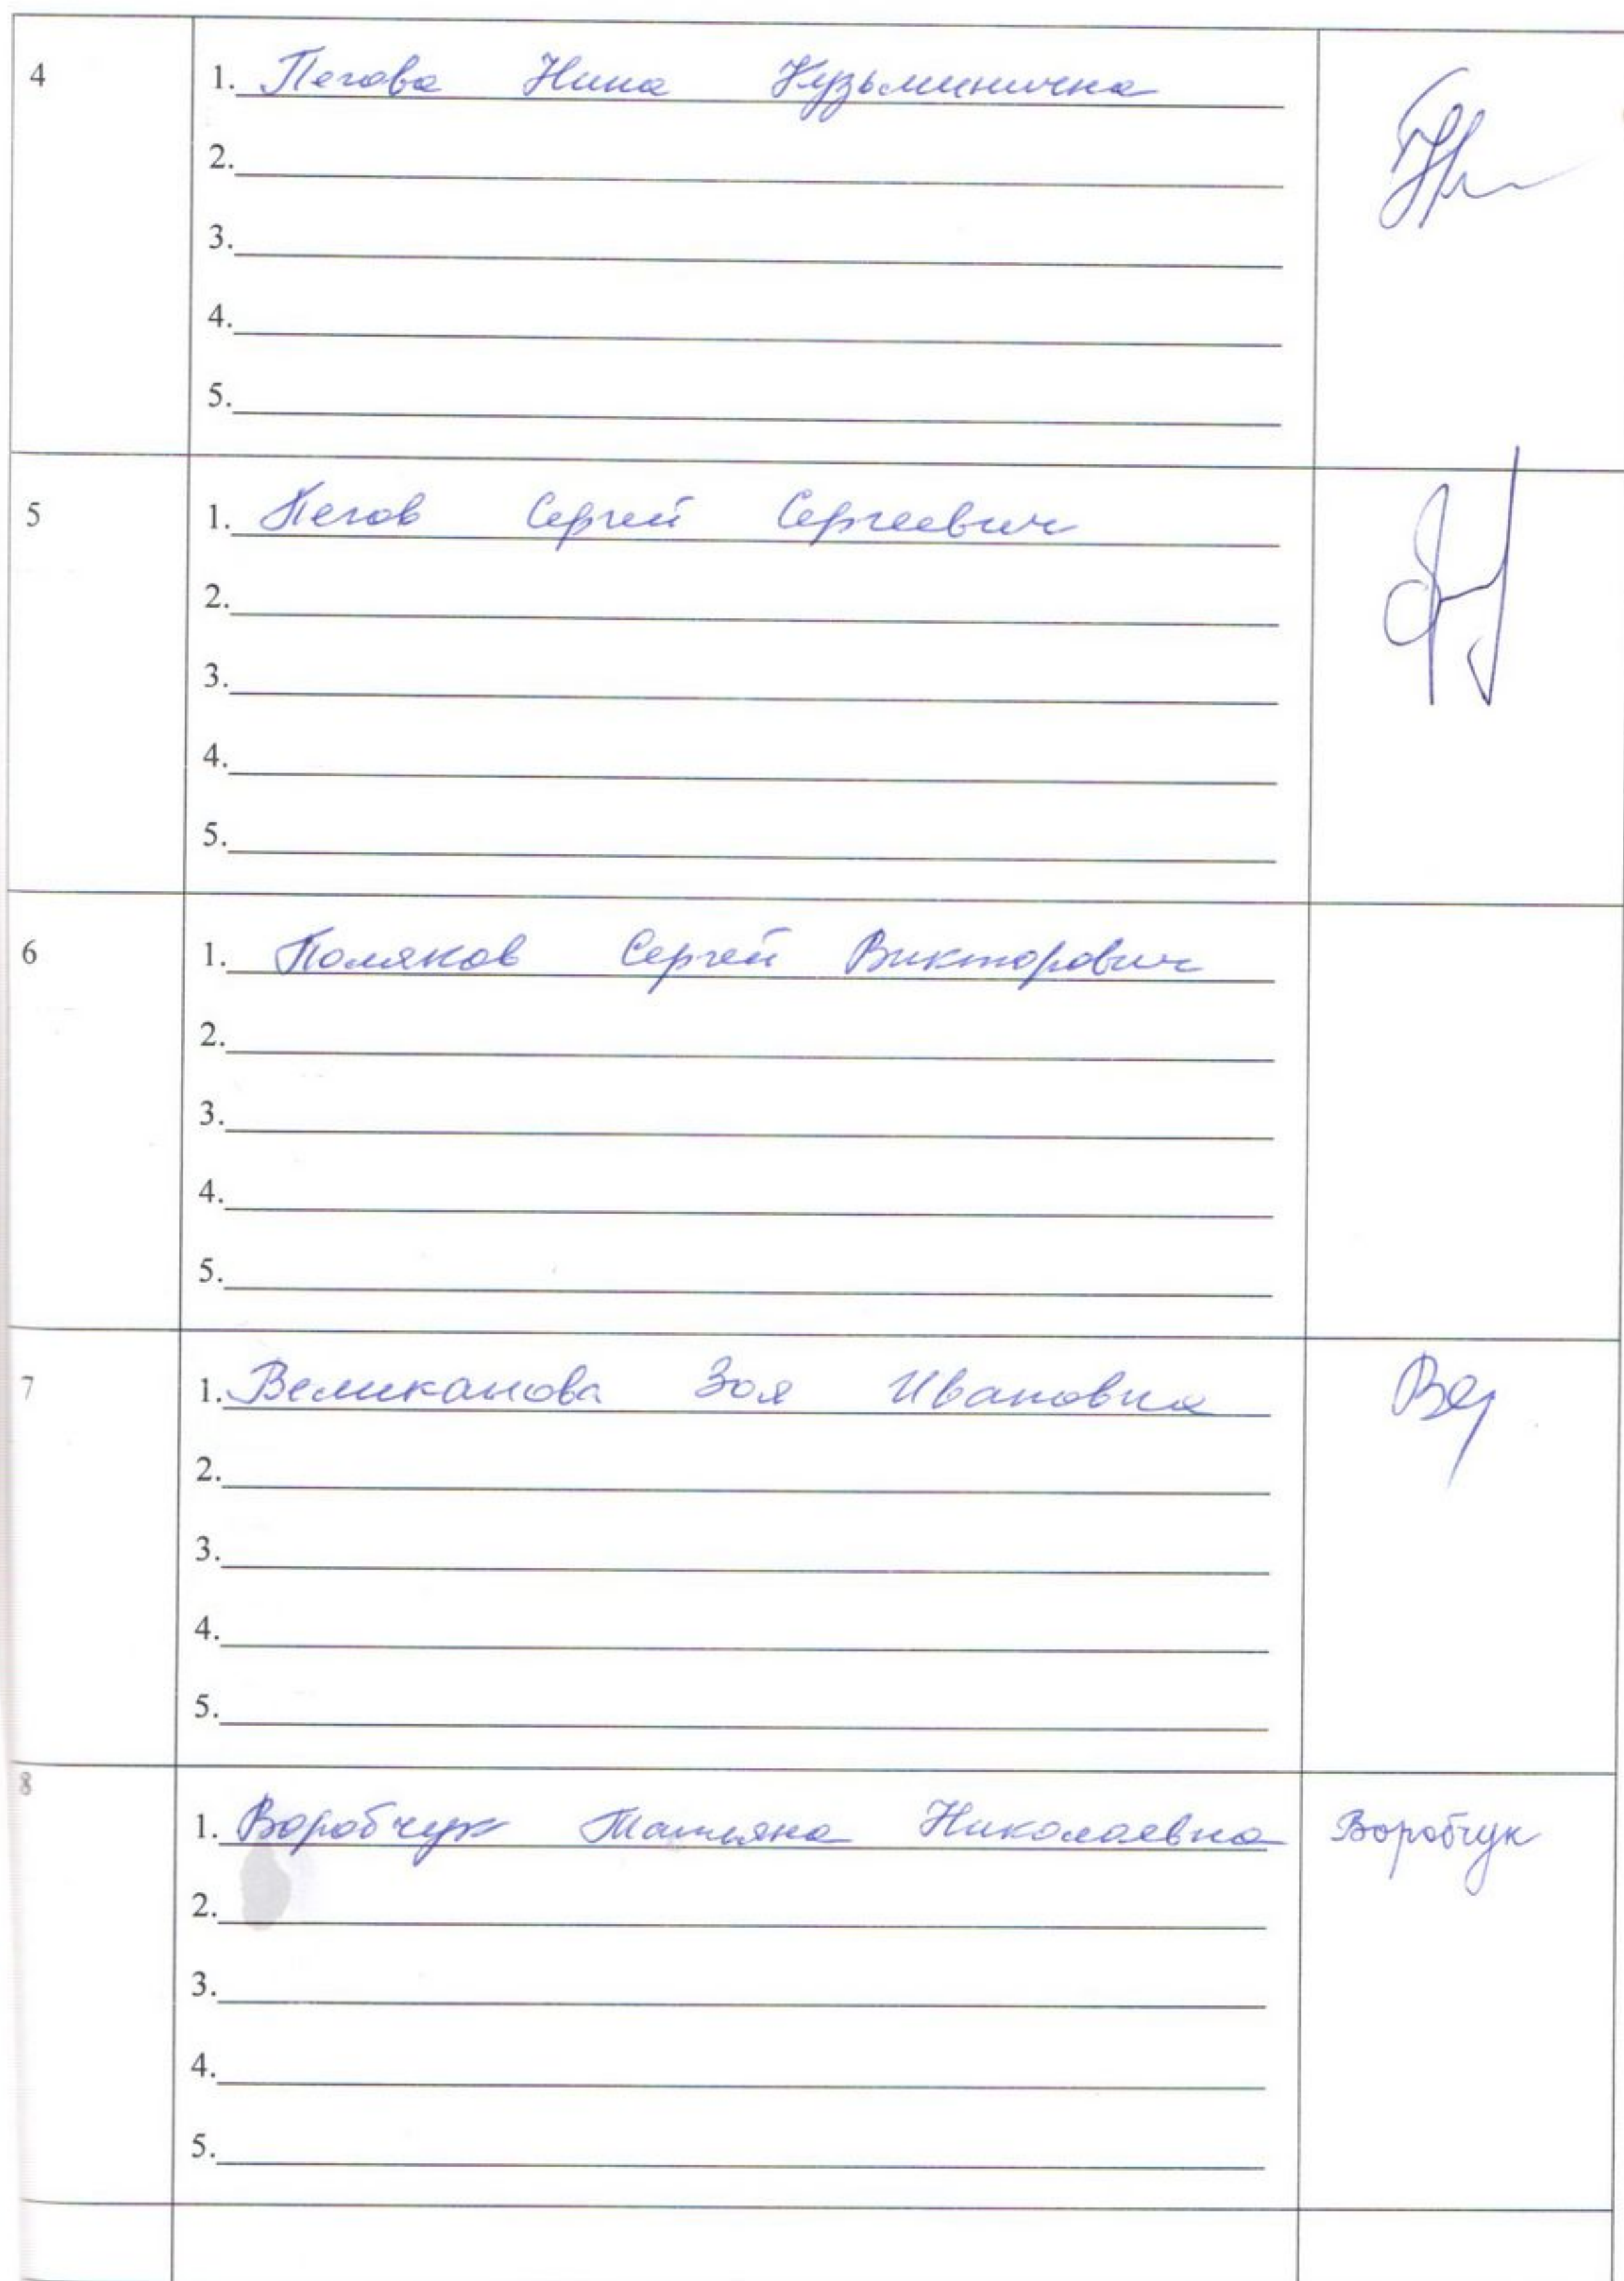 4
1. Пегова Нина Кузьминична
2.
3.
4.
5.
5
1. Пегов Сергей Сергеевич
2.
3.
4.
5.
6
1. Поляков Сергей Викторович
2.
3.
4.
5.
7
1. Великанова Зоя Ивановна
2.
3.
4.
5.
8
1. Воробчук Татьяна Николаевна Воробчук
2.
3.
4.
5.